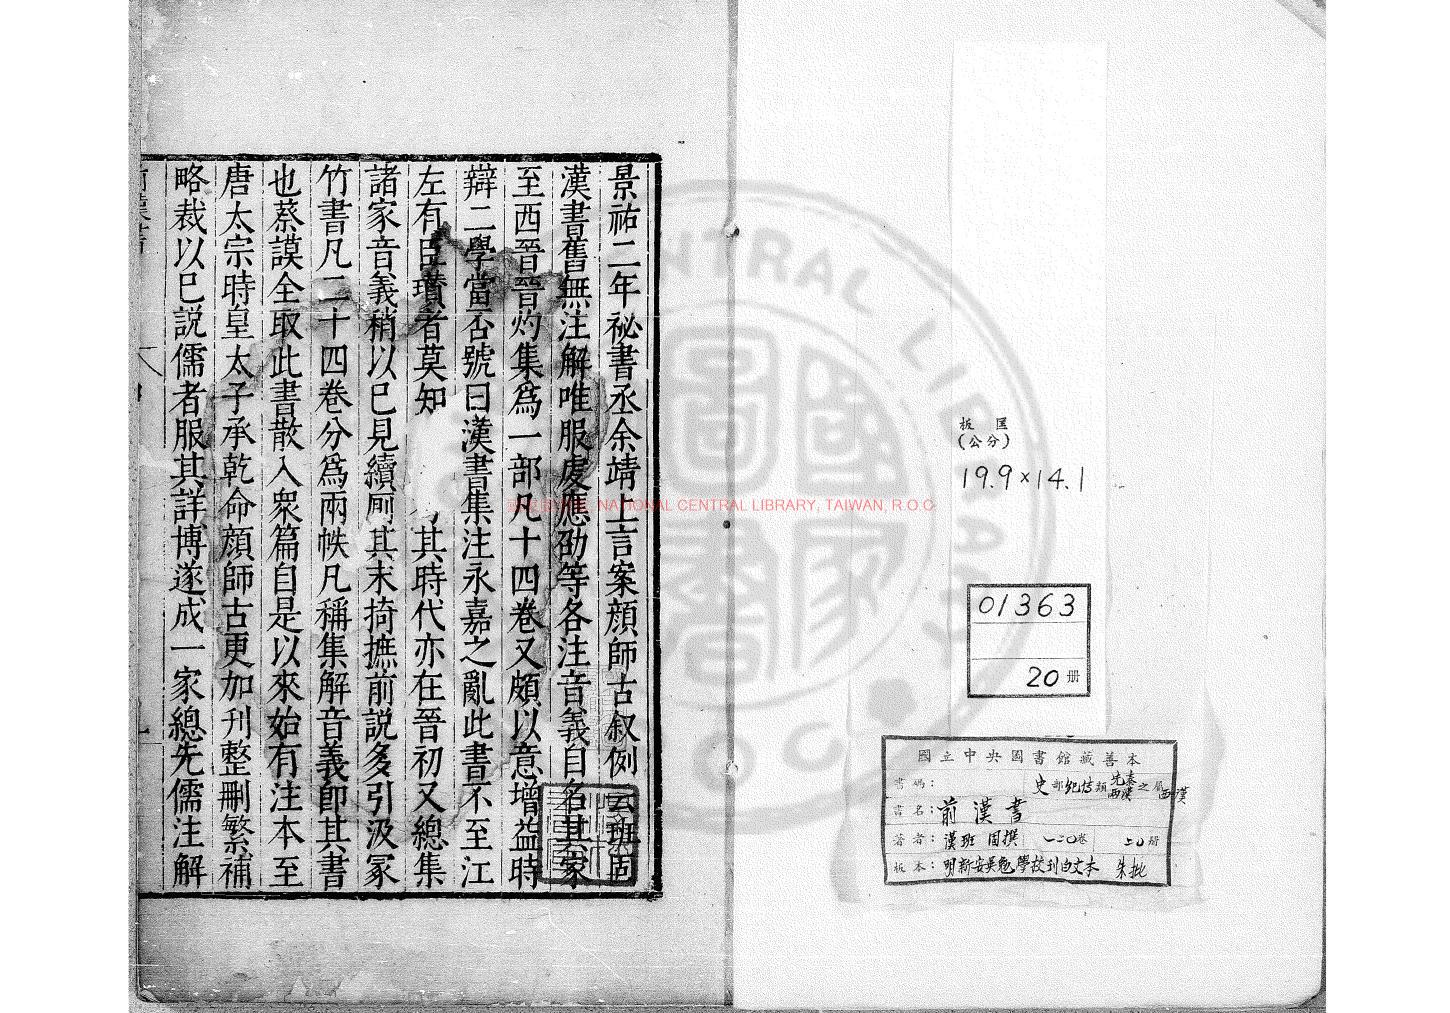 景祐二年祕書丞余靖上言案顔師古叙例云班固
漢書舊無注解唯服虔應劭等各注音義自名其家
至西晉晉灼集爲一部凡十四卷又頗以意增益時
辯二學當否號曰漢書集注永嘉之亂此書不至江
左有臣瓚者莫知 其時代亦在晉初又總集
諸家音義稍以已見續厠其末掎摭前説多引汲冢
竹書凡二十四卷分爲兩帙凡稱集解音義即其書
也蔡謨全取此書散入衆篇自是以來始有注本至
唐太宗時皇太子承乾命顔師古更加刊整刪繁補
略裁以巳説儒者服其詳博遂成一家總先儒注解
前漢書
板匡
(公分)
19.9×14.1
01363
20册
國立中央圖書館藏善本
書碼: 史部紀傳類先秦西漢之屬西漢
書名:前漢書
著者:漢班固撰 一二〇卷 二〇册
板本:明新安吳勉學校刊白文本 朱批
NATIONAL CENTRAL LIBRARY, TAIWAN, R.O.C
CENTRAL LIBRARY